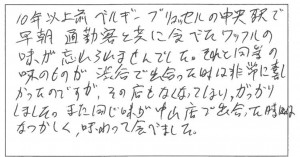 10年以上前 ベルギーブリュッセルの中央駅で
早朝 通勤客と共に食べたワッフルの
味が忘れられませんでした。それと同等の
味のものが 渋谷で出会った時は非常に喜し
かったのですが、その店もなくなってしまい、がっかり
しました。また同じ味が中山店で出会った時は
なつかしく、味わって食べました。